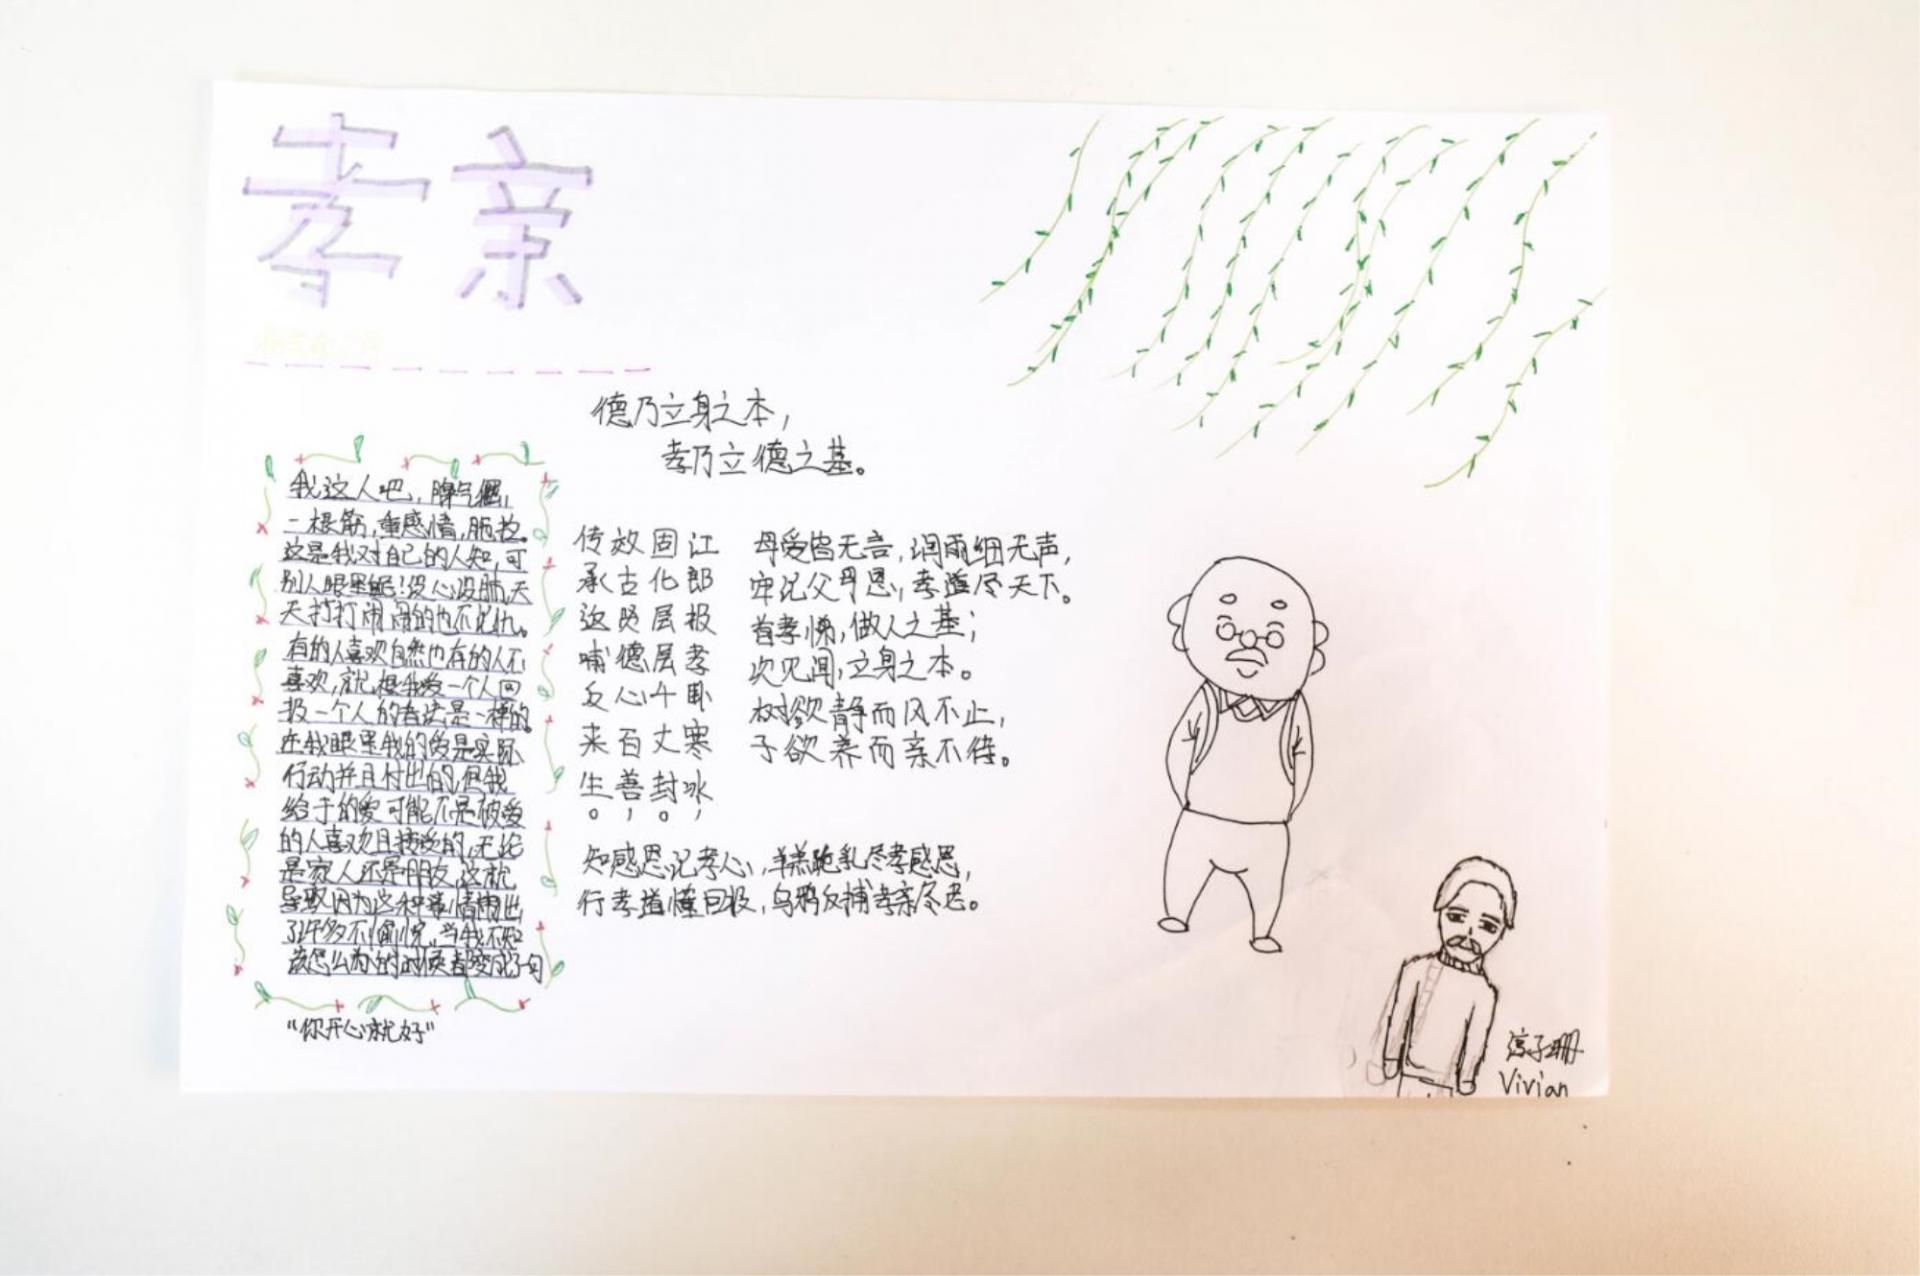 孝亲
德乃立身之本，
孝乃立德之基。
我这人吧，脾气倔，
一根筋，重感情，拖拉。
这是我对自己的人知，可
别人眼里呢！没心没肺，天
天打打闹闹的也不记仇。
有的人喜欢自然也有的人不
喜欢，就想我爱一个人回
报一个人的看法是一样的。
在我眼里我的爱是实际
行动并且付出的，但我
给于的爱可能不是被爱
的人喜欢且接受的，无论
是家人还是朋友，这就
导致因为这种事情闹出
了许多不愉悦，当我不知
该怎么办的时候都变成了句
“你开心就好”
江郎报孝卧寒冰，
固化层层千丈封。
效古贤德心百善，
传承这哺反来生。
母爱皆无言，润雨细无声，
牢记父母恩，孝道尽天下。
首孝悌，做人之基；
次见闻，立身之本。
树欲静而风不止，
子欲养而亲不待。
知感恩记孝心，羊羔跪乳尽孝感恩，
行孝道懂回报，乌鸦反捕孝亲尽老。
子珊
Vivian